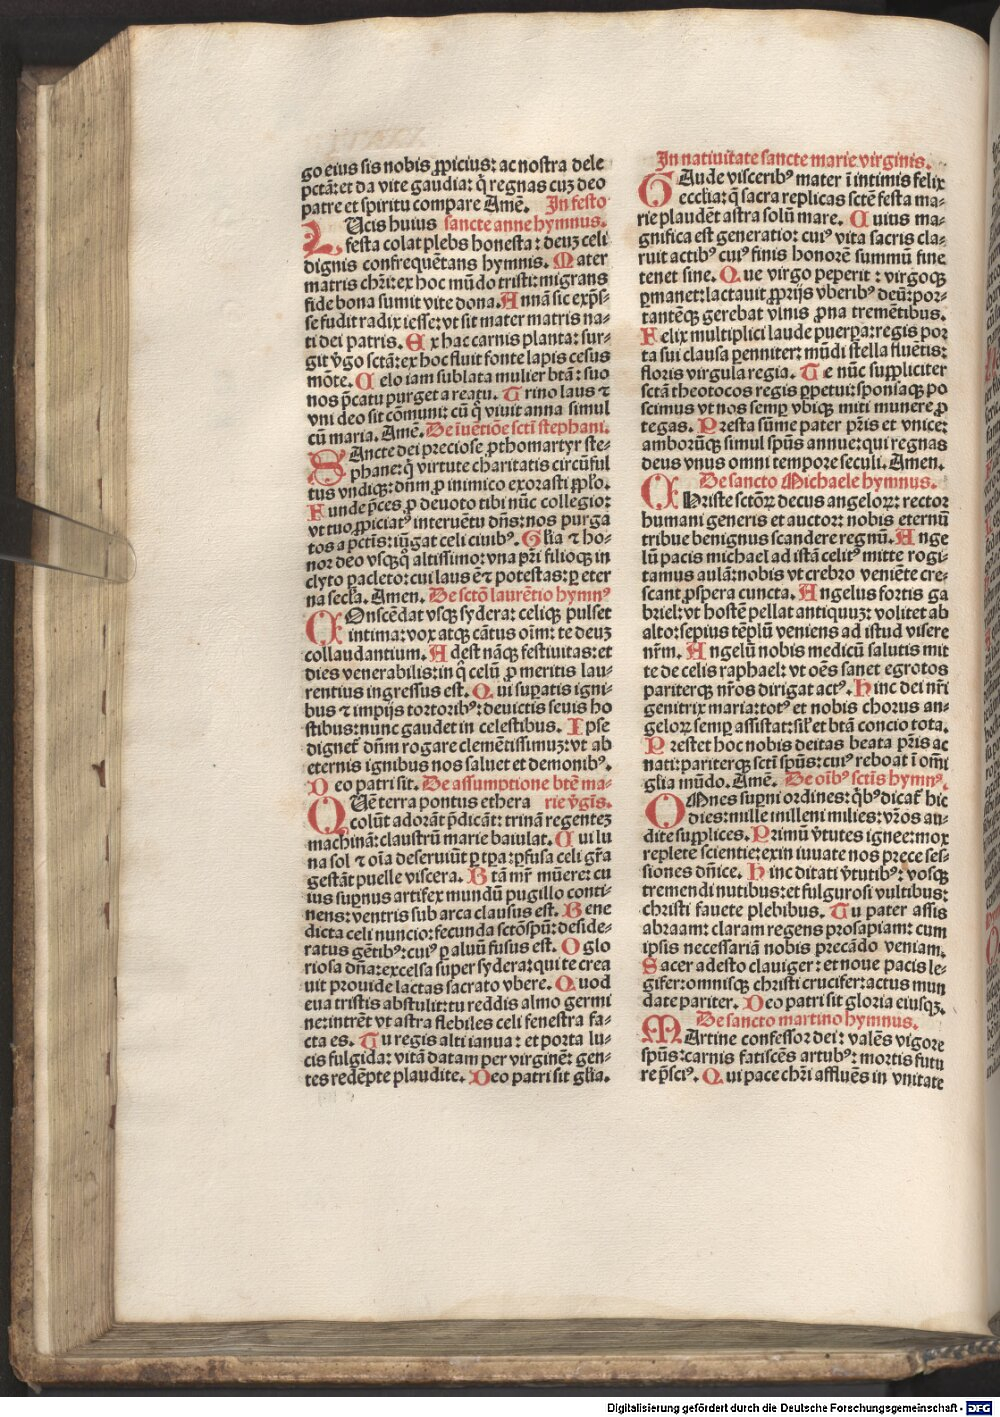 go eius sis nobis ꝓpicius: ac nostra dele
pctā: et da vite gaudia: q̄ regnas cuʒ deo
patre et spiritu compare Amē. In festo
LUcis huius sancte anne hymnus.
festa colat plebs honesta: deuʒ celi
dignis confrequētans hymnis. Mater
matris chr̄i: ex hoc mūdo tristi: migrans
fide bona sumit vite dona. Annā sic exp̄s-
se fudit radix iesse: vt sit mater matris na-
ti dei patris. Ex hac carnis planta: sur-
git v̄go sctā: ex hoc fluit fonte lapis cesus
mōte. Celo iam sublata mulier btā: suo
nos p̄catu purget a reatu. Trino laus ⁊
vni deo sit cōmuni: cū q̄ viuit anna simul
cū maria. Amē. De īuētiōe sctī stephani.
SAncte dei preciose ꝓthomartyr ste-
phane: q̄ virtute charitatis circūful
tus vndiqꝫ: dūm ꝓ inimico exorasti ꝓplo.
Funde p̄ces ꝓ deuoto tibi nūc collegio:
vt tuo ꝓpiciatꝰ interuētu dn̄s: nos purga
tos a pctīs: iūgat celi ciuibꝰ. Glīa ⁊ ho-
nor deo vsqꝫq̄ altissimo: vna pr̄i filioqꝫ in
clyto ꝑacleto: cui laus ē ⁊ potestas: ꝑ eter
na secl̄a. Amen. De sctō laurētio hymnꝰ
COnscēdat vsqꝫ sydera: celiqꝫ pulset
intima: vox atqꝫ cātus oīm: te deuʒ
collaudantium. Adest nāqꝫ festiuitas: et
dies venerabilis: in q̄ celū ꝓ meritis lau-
rentius ingressus est. Qui suꝑatis igni-
bus ⁊ impijs tortoribꝰ: deuictis seuis ho
stibus: nunc gaudet in celestibus. Ipse
dignet̄ dn̄m rogare clemētissimuʒ: vt ab
eternis ignibus nos saluet et demonibꝰ.
Deo patri sit. De assumptione btē ma-
QUē terra pontus ethera rie v̄gis.
colūt adorāt p̄dicāt: trinā regenteʒ
machinā: claustrū marie baiulat. Cui lu
na sol ⁊ oīa deseruiūt ꝑ tꝑa: ꝑfusa celi gr̄a
gestāt puelle viscera. Btā mr̄ mūere: cu
ius suꝑnus artifex mundū pugillo conti-
nens: ventris sub arca clausus est. Bene
dicta celi nuncio: fecunda sctōspū: deside-
ratus gētibꝰ: cuiꝰ ꝑ aluū fusus est. O glo
riosa dn̄a: excelsa super sydera: qui te crea
uit prouide lactas sacrato vbere. Quod
eua tristis abstulit: tu reddis almo germi
ne: intrēt vt astra flebiles celi fenestra fa-
cta es. Tu regis alti ianua: et porta lu-
cis fulgida: vitā datam per virginē: gen-
tes redēpte plaudite. Deo patri sit gl̄ia.
In natiuitate sancte marie virginis.
GAude visceribꝰ mater ī intimis felix
ecclīa: q̄ sacra replicas sctē festa ma-
rie plaudēt astra solū mare. Cuius ma-
gnifica est generatio: cuiꝰ vita sacris cla-
ruit actibꝰ cuiꝰ finis honorē summū fine
tenet sine. Que virgo peperit: virgoqꝫ
ꝑmanet: lactauit ꝓprijs vberibꝰ deū: por-
tantēqꝫ gerebat vlnis ꝓna tremētibus.
Felix multiplici laude puerpa: regis por
ta sui clausa ꝑenniter: mūdi stella fluētis:
floris virgula regia. Te nūc suppliciter
sctā theotocos regis ꝑpetui: sponsaqꝫ po
scimus vt nos semꝑ vbiqꝫ miti munere ꝓ
tegas. Presta sūme pater pr̄is et vnice:
amborūqꝫ simul spūs annue: qui regnas
deus vnus omni tempore seculi. Amen.
De sancto Michaele hymnus.
CHriste sctōꝝ decus angeloꝝ: rector
humani generis et auctor: nobis eternū
tribue benignus scandere regnū. Ange
lū pacis michael ad istā celitꝰ mitte rogi-
tamus aulā: nobis vt crebro veniēte cre-
scant ꝓspera cuncta. Angelus fortis ga
briel: vt hostē pellat antiquuʒ: volitet ab
alto: sepius tēplū veniens ad istud visere
nr̄m. Angelū nobis medicū salutis mit
te de celis raphael: vt oēs sanet egrotos
pariterqꝫ nr̄os dirigat actꝰ. Hinc dei nr̄i
genitrix maria: totꝰ et nobis chorus an-
geloꝝ semꝑ assistat: sil̄ et btā concio tota.
Prestet hoc nobis deitas beata pr̄is ac
nati: pariterqꝫ sctī spūs: cuiꝰ reboat ī om̄i
glīa mūdo. Amē. De oībꝰ sctīs hymnꝰ.
OMnes suꝑni ordines: q̄bꝰ dicat̄ hic
dies: mille milleni milies: vr̄os au-
dite supplices. Primū v̄tutes ignee: mox
replete scientie: exin iuuate nos prece ses-
siones dn̄ice. Hinc ditati v̄tutibꝰ: vosqꝫ
tremendi nutibus: et fulgurosi vultibus:
christi fauete plebibus. Tu pater assis
abraam: claram regens prosapiam: cum
ipsis necessariā nobis precādo veniam.
Sacer adesto clauiger: et noue pacis le-
gifer: omnisqꝫ christi crucifer: actus mun
date pariter. Deo patri sit gloria eiusqꝫ.
De sancto martino hymnus.
MArtine confessor dei: valēs vigore
spūs: carnis fatiscēs artubꝰ: mortis futu
re p̄sciꝰ. Qui pace chr̄i affluēs in vnitate
Digitalisierung gefördert durch die Deutsche Forschungsgemeinschaft - DFG